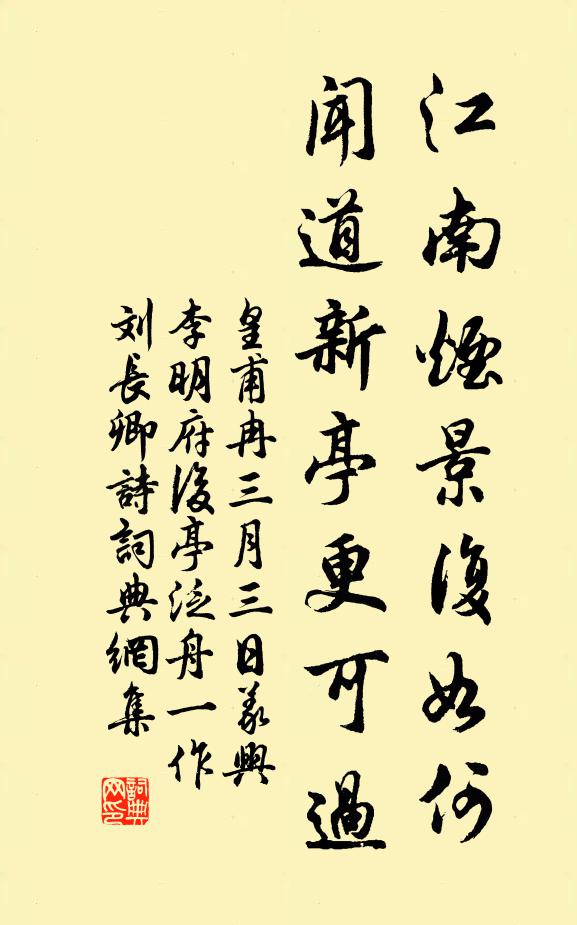 江南煙景復如何
聞道新亭更可過
皇甫冉三月三日義興
李明府後亭泛舟一作
刘長卿詩詞典網集
詞典
网印